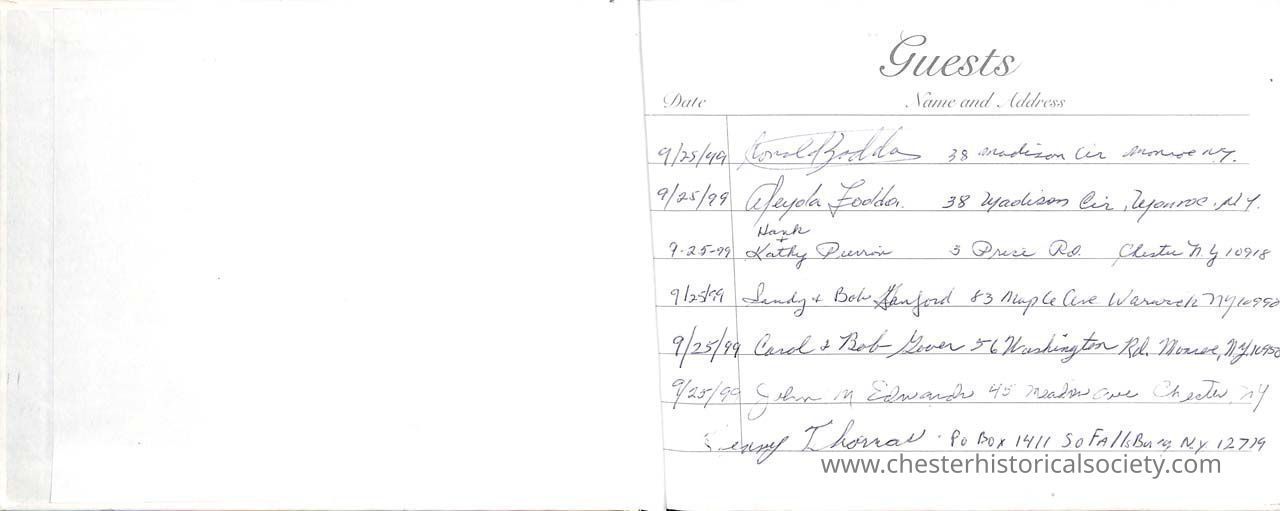 Guests
Date Name and Address
9/25/99 Ronald Zodda 38 Madison Cir Monroe NY.
9/25/99 Aleyda Zodda. 38 Madison Cir, Monroe, N.Y.
Hank
9-25-99 + Kathy 3 Price Rd. Chester N.Y 10918
9/25/99 Sandy + Bob Sanford 83 Maple Ave Warwick NY 10990
9/25/99 Carol & Bob Gover 56 Washington Rd. Monroe, N.Y. 10950
9/25/99 John M Edwards 45 Meadow Ave Chester, NY
Thomas PO Box 1411 So FAllsBurg N.Y. 12779
www.chesterhistoricalsociety.com